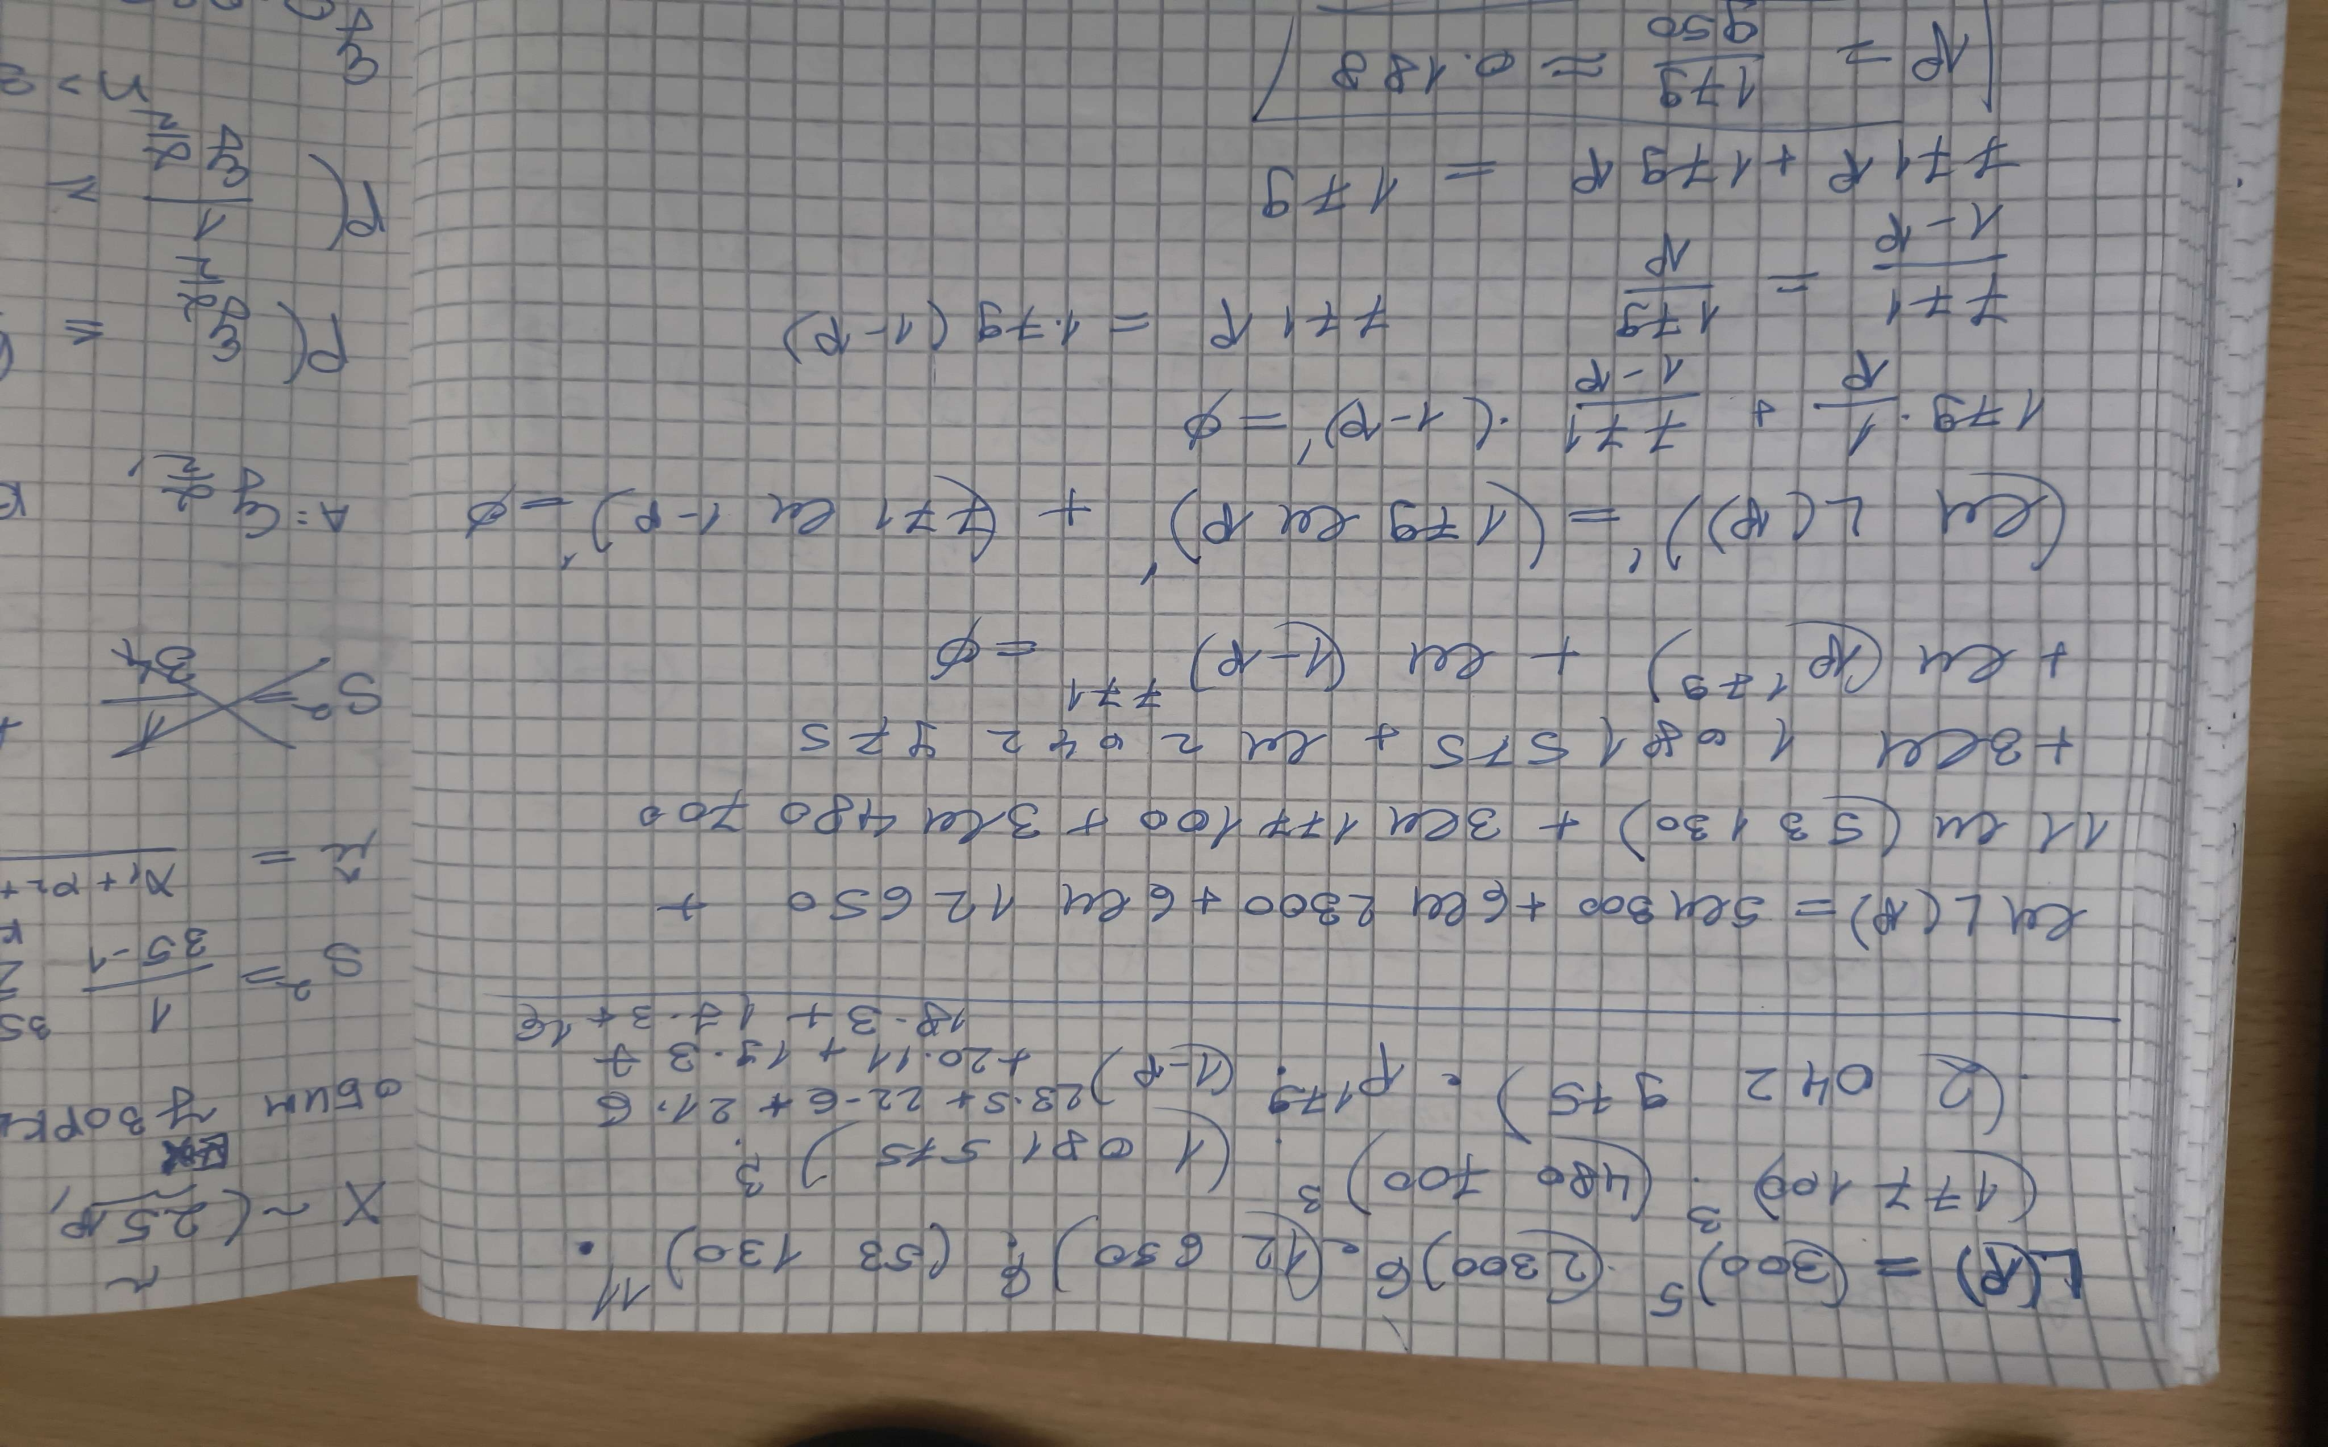 L(p) = (300)^5 · (2300)^6 · (12 650)^6 · (53 130)^11 ·
(177 100)^3 · (480 700)^3 · (1 081 575)^3 ·
(2 042 975) · p^179 · (1-p)^23·5+22·6+21·6
+20·11+19·3+
18·3+17·3+16
ln L(p) = 5ln300 + 6ln 2300 + 6 ln 12 650 +
11 ln (53 130) + 3ln 177 100 + 3 ln 480 700
+3ln 1 081 575 + ln 2 042 975
+ ln (p^179) + ln (1-p)^771 = ∅
(ln L(p))' = (179 ln p)' + (771 ln 1-p)' = ∅
179 · 1/p + 771/1-p · (1-p)' = ∅
771/1-p = 179/p 771 p = 179 (1-p)
771p + 179p = 179
p = 179/950 ≈ 0.188
X ~ (25,p)
S² = 1/35-1
x̄ = x₁+x₂+
S² = 1/34